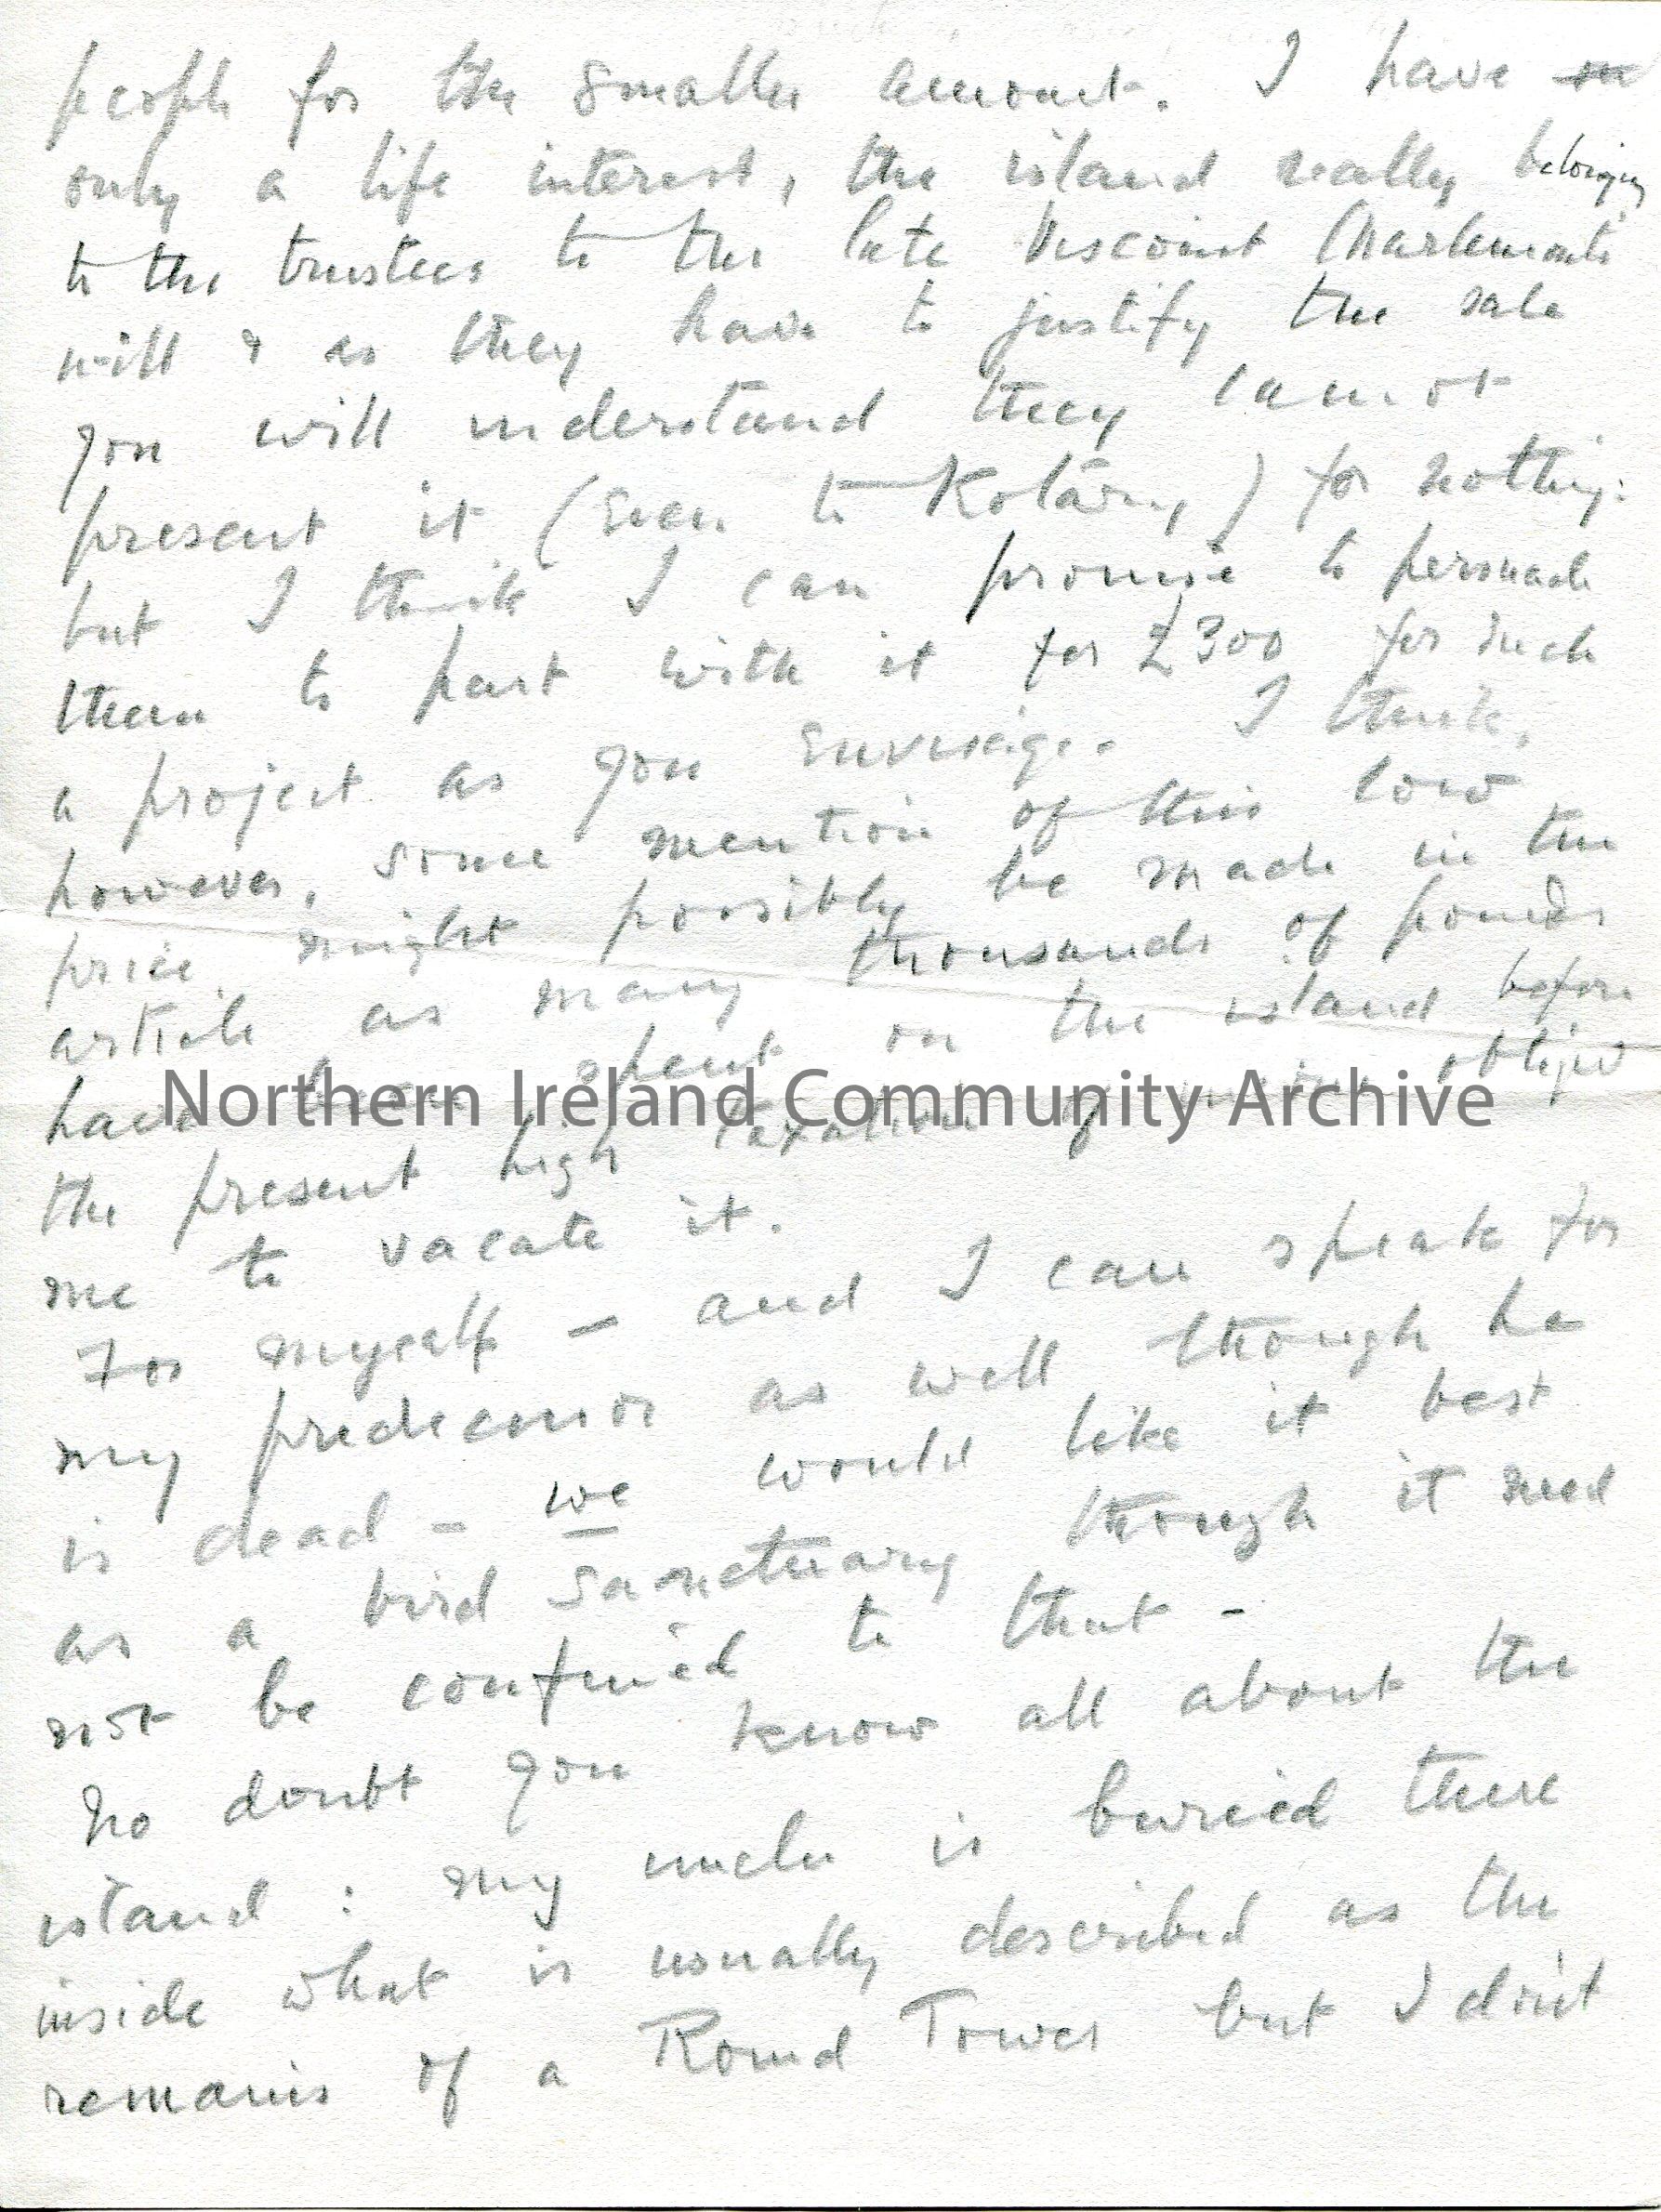 people for the smaller amount. I have
only a life interest, the island really belonging
to the trustees to the late Viscount Charlemont's
will & as they have to justify the sale
you will understand they cannot
present it (even to Rotary) for nothing:
but I think I can promise to persuade
them to part with it for £300 for such
a project as you envisage. I think,
however, some mention of this low
price might possibly be made in the
article as many thousands of pounds
have been spent on the island before
Northern Ireland Community Archive
the present high taxation obliged
me to vacate it.
For myself – and I can speak for
my predecessor as well though he
is dead – we would like it best
as a bird sanctuary though it need
not be confined to that –
No doubt you know all about the
island: my uncle is buried there
inside what is usually described as the
remains of a Round Tower but I don't